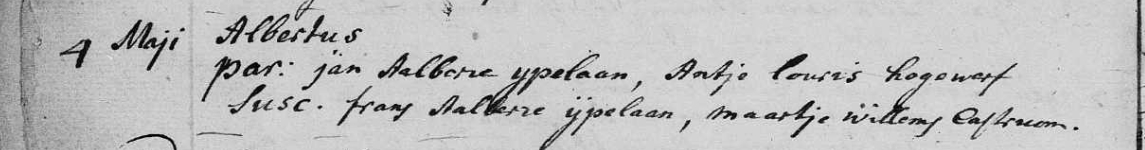 4 Maji Albertus
par: jan Aalberze ypelaan, Antje louris hogewerf
Susc. frans Aalberze ijpelaan, maartje willems Castricom.